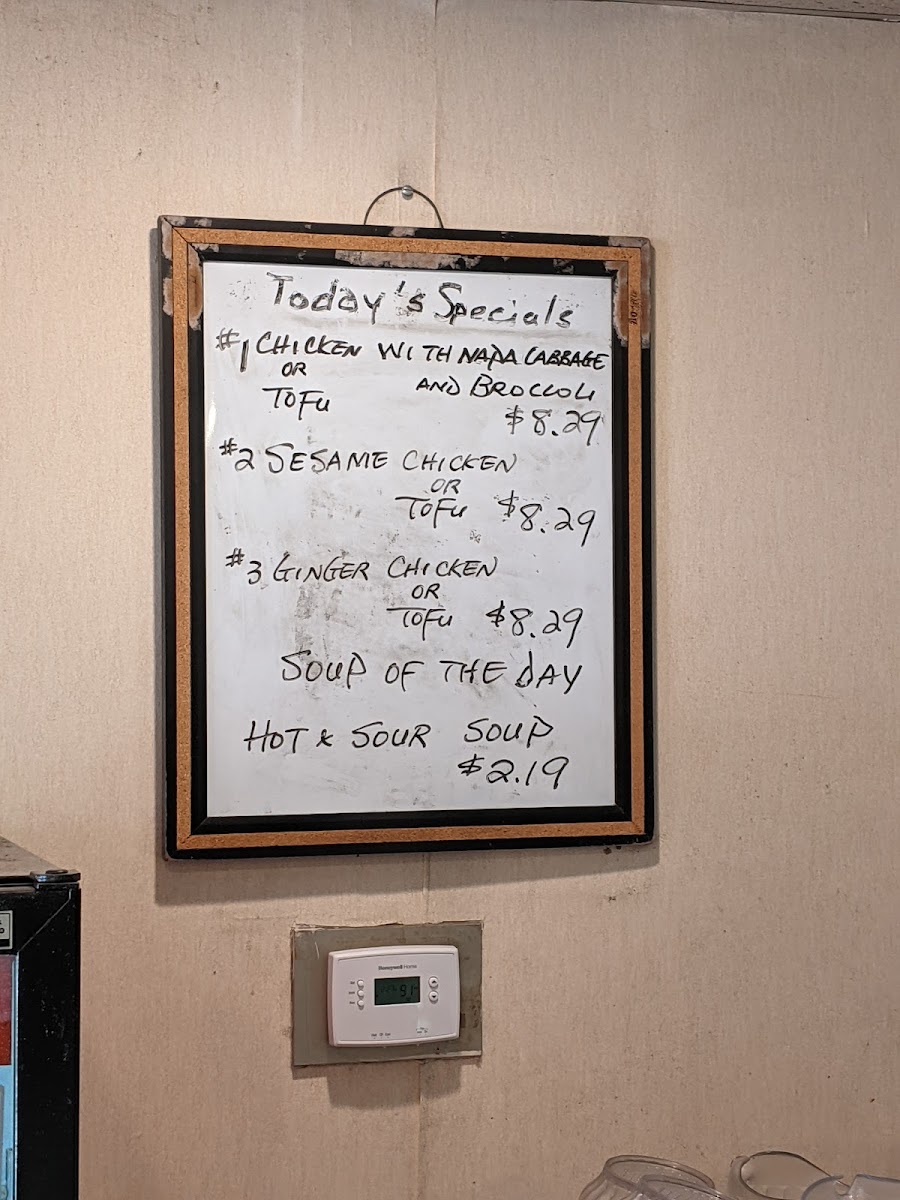 Today's Specials
#1 CHICKEN WITH NAPA CABBAGE
OR
AND BROCCOLI
TOFU
$8.29
#2 SESAME CHICKEN
OR
TOFU $8.29
#3 GINGER CHICKEN
OR
TOFU $8.29
SOUP OF THE DAY
HOT & SOUR SOUP
$2.19
Honeywell Home
91